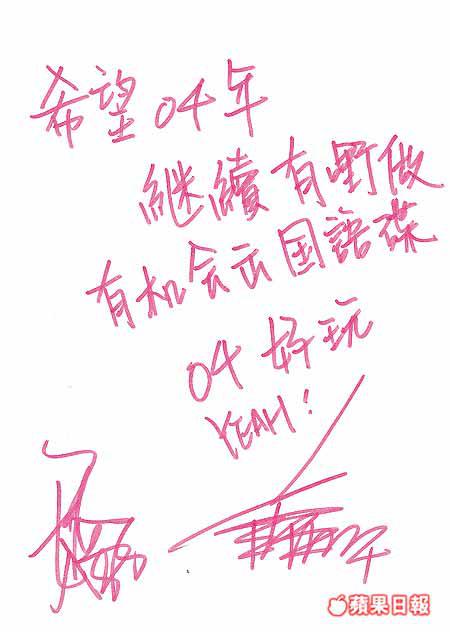 希望04年
繼續有野做
有机会出国語碟
04 好玩
YEAH!
蘋果日報